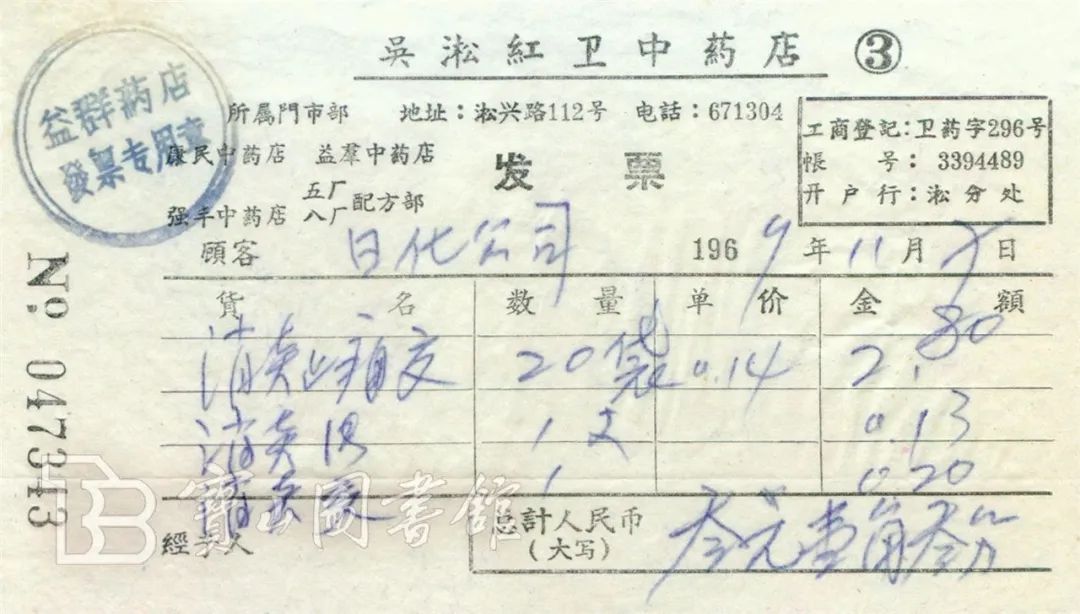 吳淞紅卫中药店 ③
益群药店
發票专用章
所属門市部 地址：淞兴路112号 电話：671304
康民中药店 益羣中药店
强丰中药店 五厂 八厂 配方部
发票
工商登記：卫药字296号
帳号：3394489
开户行：淞分处
顧客 日化公司 1969年11月 日
貨名 数量 单价 金額
消炎止痛 20袋 0.14 2.80
消炎 1支 0.13
1 0.20
經手人
总計人民币
（大写） 叁元壹角叁分
№ 047343
寶山圖書館